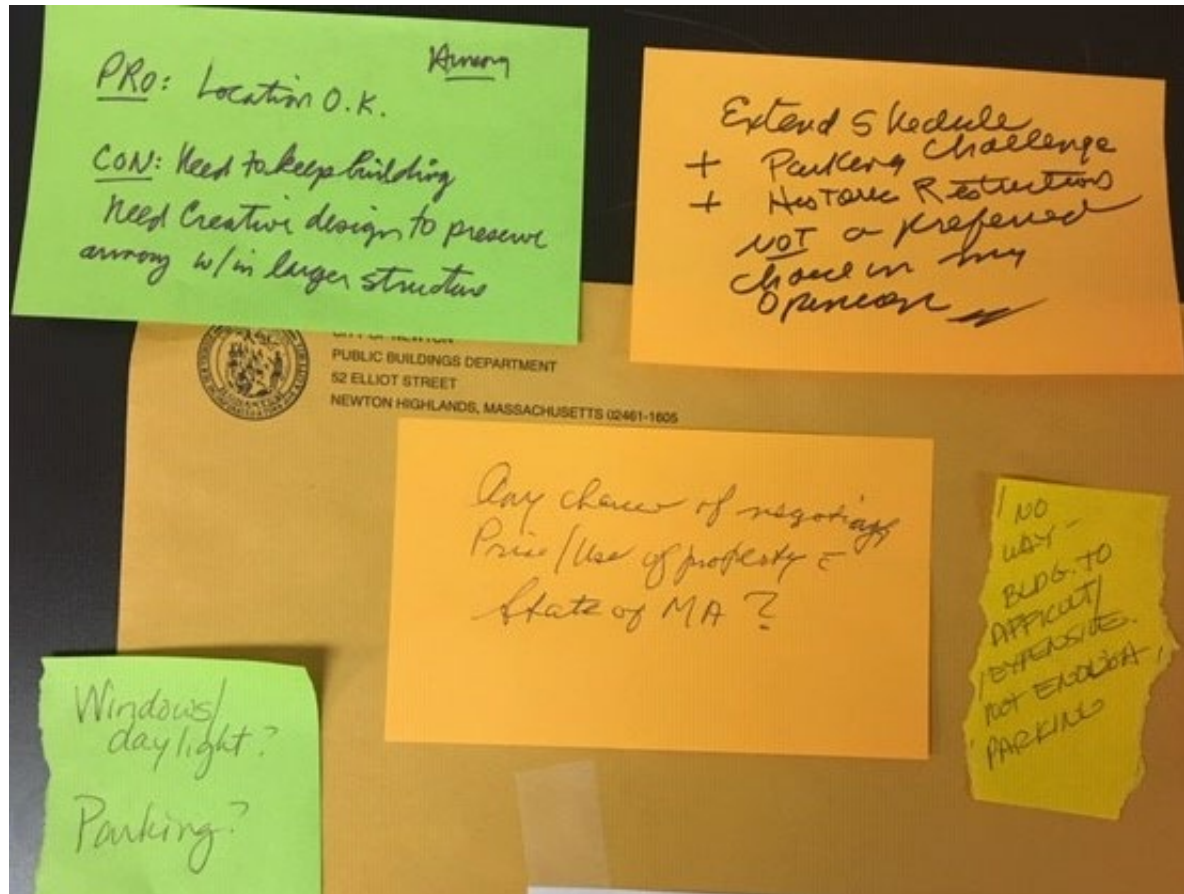 Armory
PRO: Location O.K.
CON: Need to keep building
Need Creative design to preserve
armory w/in larger structure
Extend Skedule
+ Parking Challenge
+ Historic Restrictions
NOT a preferred
choice in my
opinion
CITY OF NEWTON
PUBLIC BUILDINGS DEPARTMENT
52 ELLIOT STREET
NEWTON HIGHLANDS, MASSACHUSETTS 02461-1605
Any chance of negotiating
Price/Use of property
State of MA?
NO
WAY-
BLDG. TO
DIFFICULT/
EXPENSIVE.
NOT ENOUGH
PARKING
Windows/
daylight?
Parking?